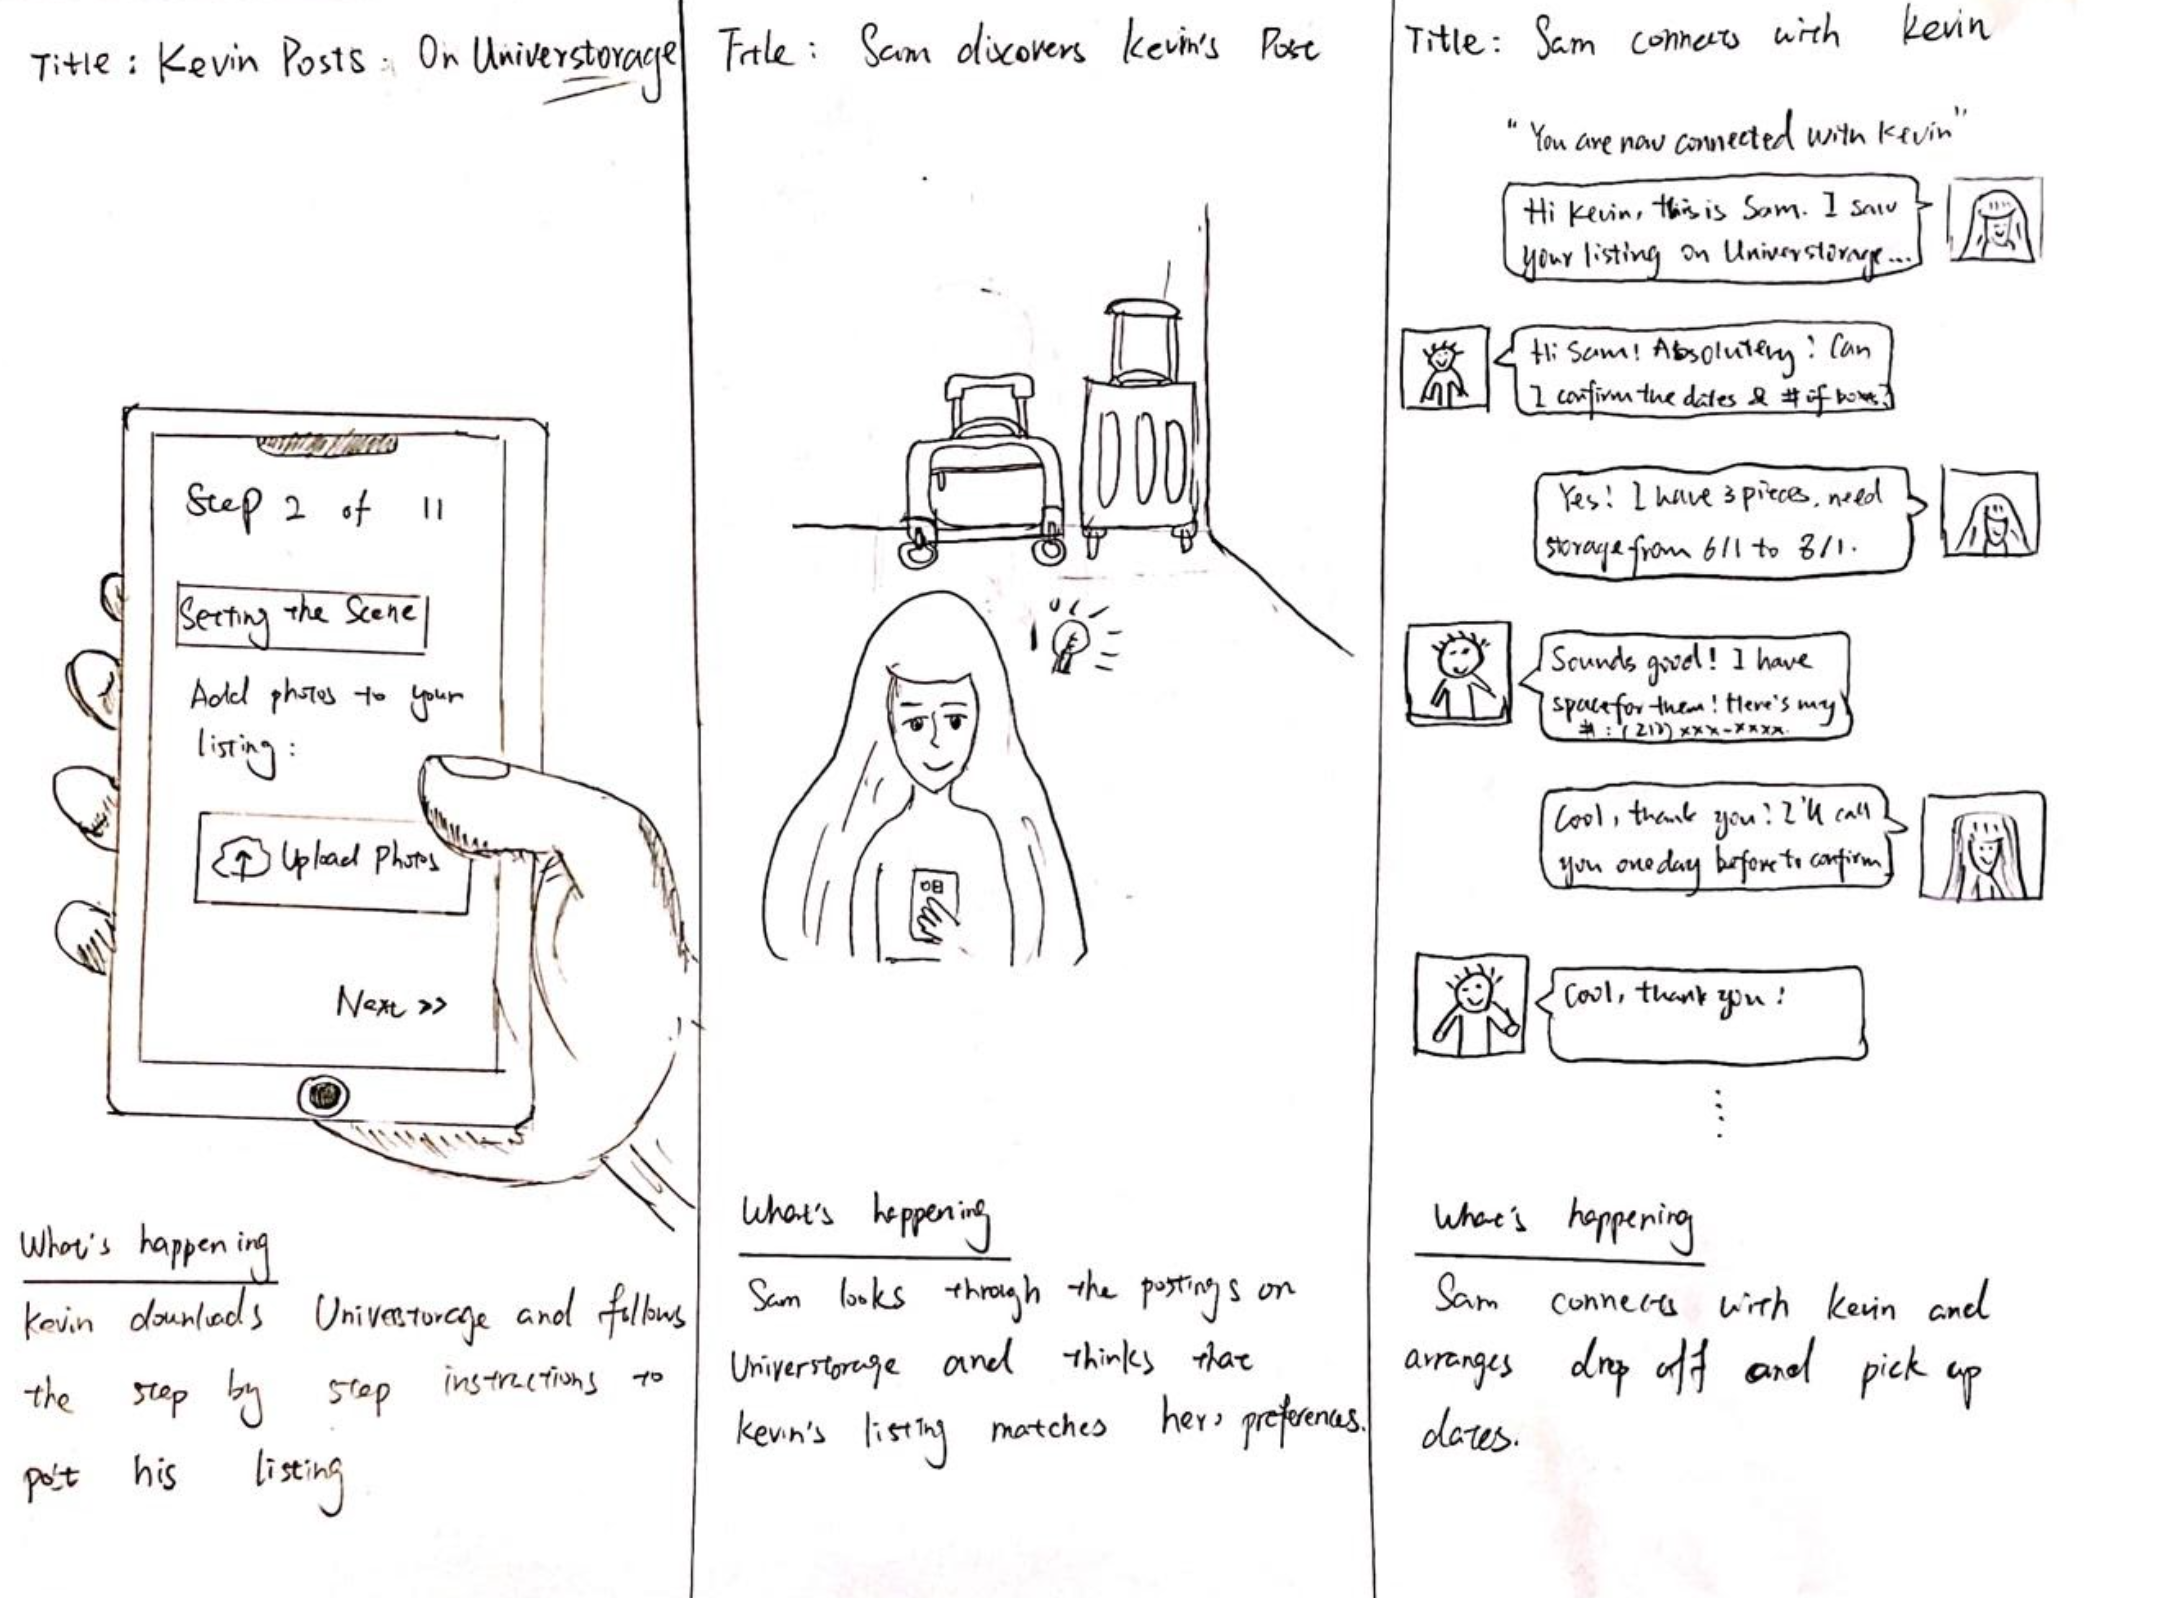 Title: Kevin Posts On Universtorage
Step 2 of 11
Setting the Scene
Add photos to your
listing:
Upload Photos
Next >>
What's happening
Kevin downloads Universtorage and follows
the step by step instructions to
post his listing
Title: Sam discovers Kevin's Post
What's happening
Sam looks through the postings on
Universtorage and thinks that
Kevin's listing matches her preferences.
Title: Sam connects with Kevin
"You are now connected with Kevin"
Hi Kevin, this is Sam. I saw
your listing on Universtorage...
Hi Sam! Absolutely! Can
I confirm the dates & # of boxes?
Yes! I have 3 pieces, need
storage from 6/1 to 8/1.
Sounds good! I have
space for them! Here's my
#: (213) xxx-xxxx.
Cool, thank you! I'll call
you one day before to confirm
Cool, thank you!
What's happening
Sam connects with Kevin and
arranges drop off and pick up
dates.